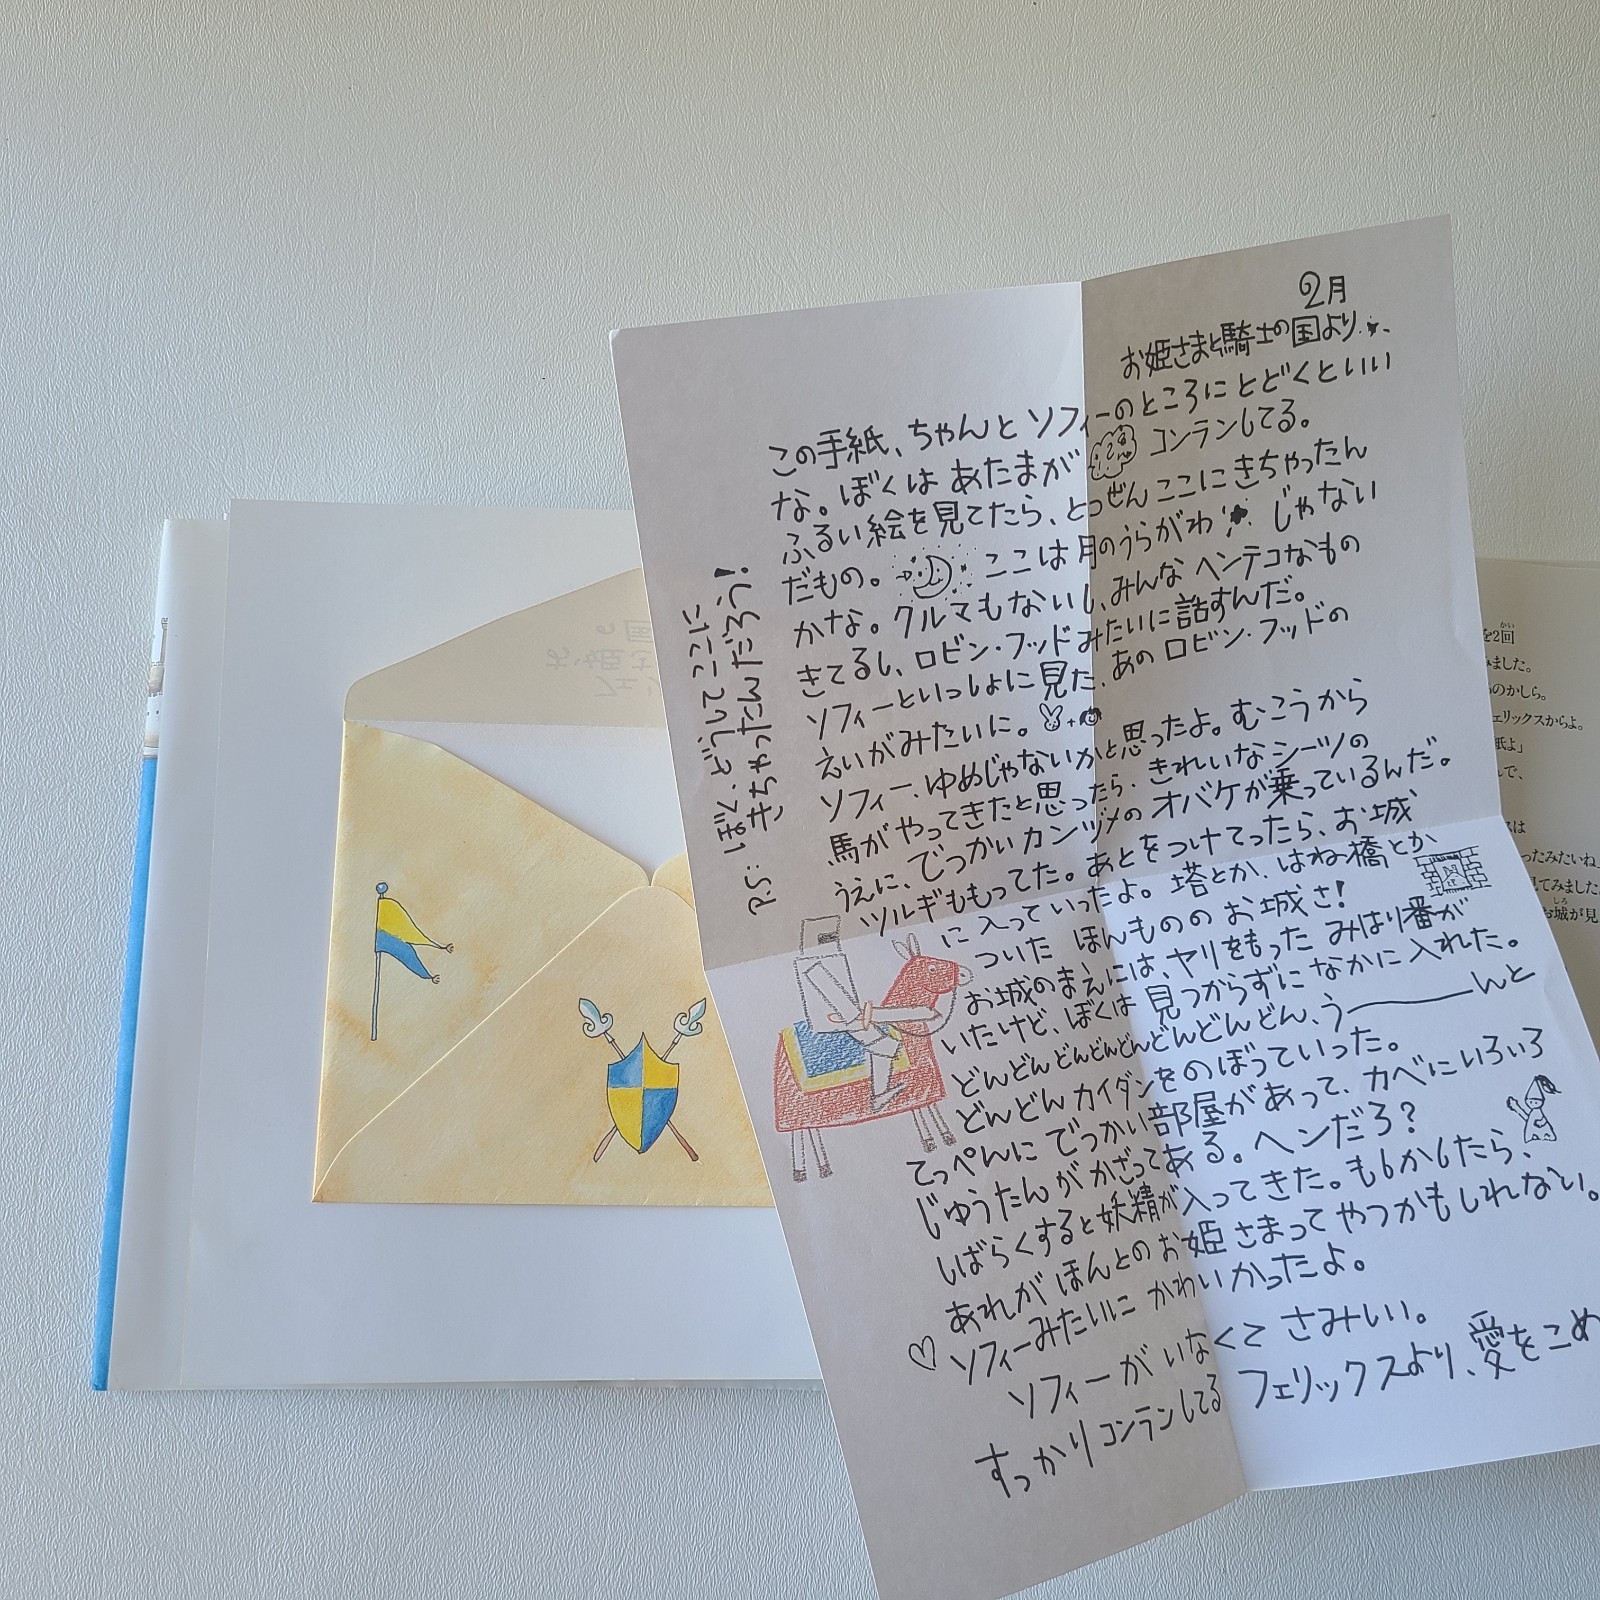 2月
お姫さまと騎士の国より
この手紙、ちゃんとソフィーのところにとどくといい
な。ぼくはあたまが コンランしてる。
ふるい絵を見てたら、とつぜんここにきちゃったん
だもの。ここは月のうらがわ じゃない
かな。クルマもないし、みんなヘンテコなもの
きてるし、ロビン・フッドみたいに話すんだ。
ソフィーといっしょに見た、あのロビン・フッドの
えいがみたいに。
ソフィー、ゆめじゃないかと思ったよ。むこうから
馬がやってきたと思ったら、きれいなシーツの
うえに、でっかいカンヅメのオバケが乗っているんだ。
ツルギももってた。あとをつけてったら、お城
に入っていったよ。塔とか、はね橋とか
ついた ほんもののお城さ!
お城のまえには、ヤリをもった みはり番が
いたけど、ぼくは見つからずになかに入れた。
どんどんどんどんどんどんどんどん、う———んと
どんどんカイダンをのぼっていった。
てっぺんにでっかい部屋があって、カベにいろいろ
じゅうたんがかざってある。ヘンだろ?
しばらくすると妖精が入ってきた。もしかしたら、
あれがほんとのお姫さまってやつかもしれない。
ソフィーみたいにかわいかったよ。
ソフィーがいなくてさみしい。
すっかりコンランしてる フェリックスより、愛をこめ
P.S: ぼく、どうしてここに
きちゃったんだろう!
の国
お姫さ
フェリ
を2回
かい
みました。
ものかしら。
フェリックスからよ。
紙よ」
んで、
スは
ったみたいね」
見てみました。
しろ
お城が見